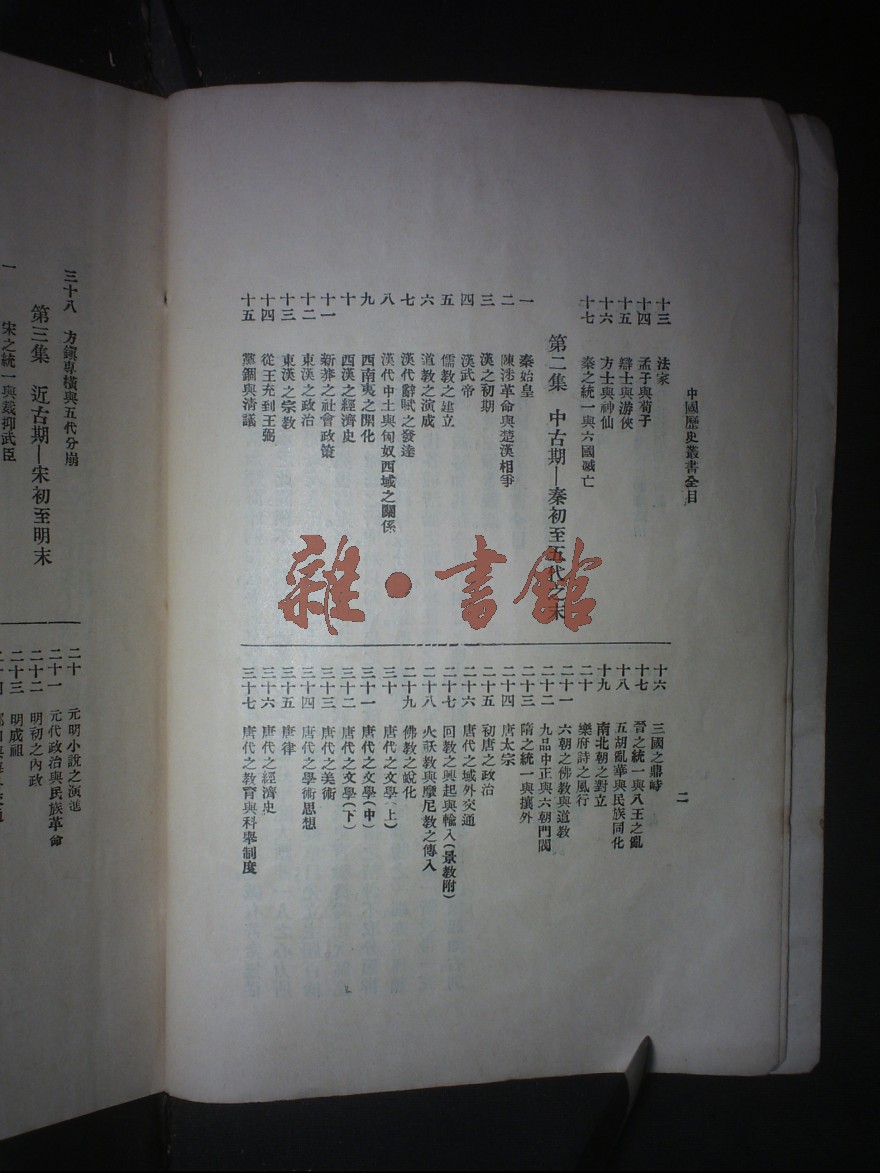 中國歷史叢書全目
二
十三 法家
十四 孟子與荀子
十五 辯士與游俠
十六 方士與神仙
十七 秦之統一與六國滅亡
第二集 中古期—秦初至五代之末
一 秦始皇
二 陳涉革命與楚漢相爭
三 漢之初期
四 漢武帝
五 儒教之建立
六 道教之演成
七 漢代辭賦之發達
八 漢代中土與匈奴西域之關係
九 西南夷之開化
十 西漢之經濟史
十一 新莽之社會政策
十二 東漢之政治
十三 東漢之宗教
十四 從王充到王弼
十五 黨錮與清議
十六 三國之鼎峙
十七 晉之統一與八王之亂
十八 五胡亂華與民族同化
十九 南北朝之對立
二十 樂府詩之風行
二十一 六朝之佛教與道教
二十二 九品中正與六朝門閥
二十三 隋之統一與攘外
二十四 唐太宗
二十五 初唐之政治
二十六 唐代之域外交通
二十七 回教之興起與輸入(景教附)
二十八 火祅教與摩尼教之傳入
二十九 佛教之蛻化
三十 唐代之文學(上)
三十一 唐代之文學(中)
三十二 唐代之文學(下)
三十三 唐代之美術
三十四 唐代之學術思想
三十五 唐律
三十六 唐代之經濟史
三十七 唐代之教育與科舉制度
三十八 方鎮專橫與五代分崩
第三集 近古期—宋初至明末
一 宋之統一與裁抑武臣
二十 元明小說之演進
二十一 元代政治與民族革命
二十二 明初之內政
二十三 明成祖
雜·書館